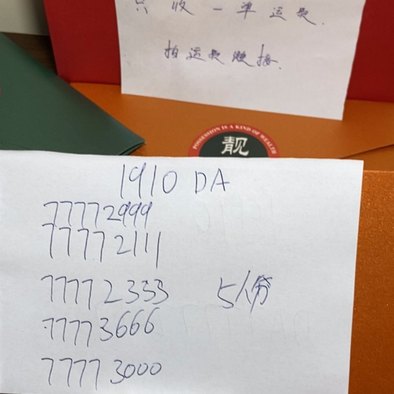 只收一单运费.
拍运费链接.
POSSESSION IS A KIND OF WEALTH
靓
1910 DA
77772999
77772111
77772333 5人份
77773666
77773000